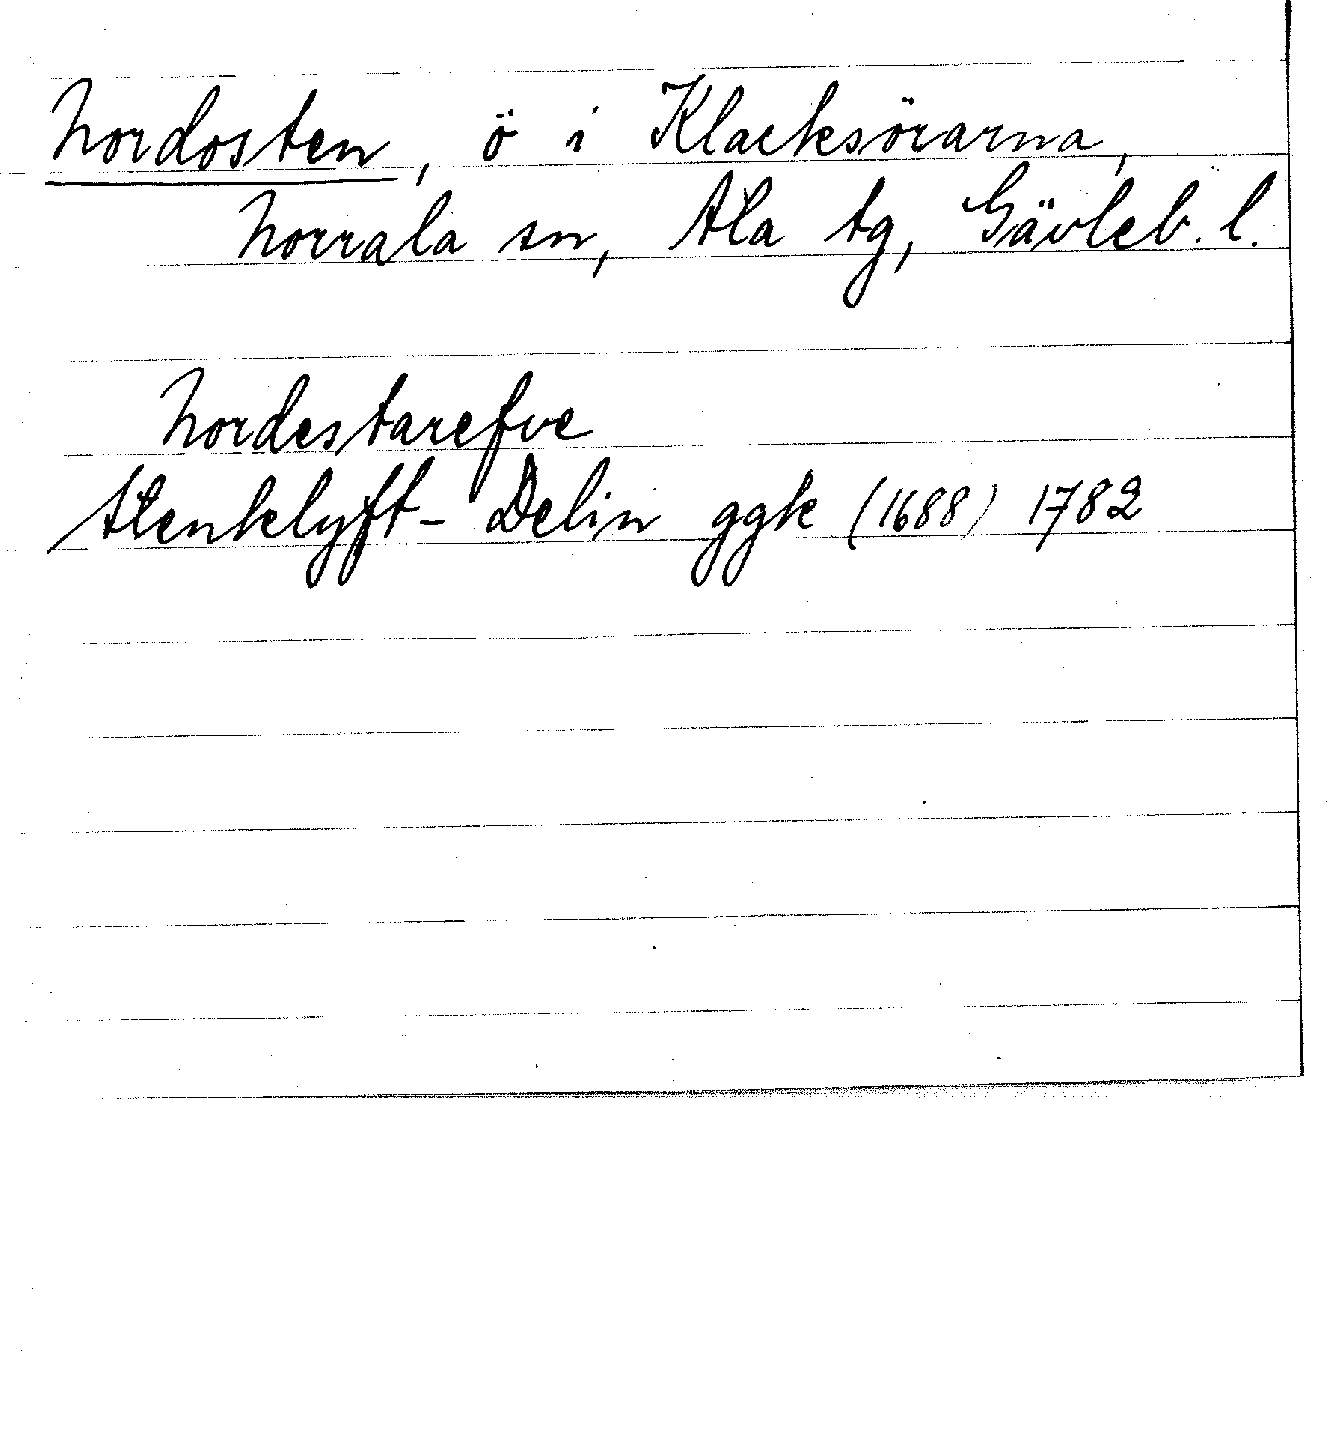 Nordosten, ö i Klacksörarna,
Norrala sn, Ala tg, Gävleb. l.
Nordestarefve
Stenklyft- Delin ggk (1688) 1782